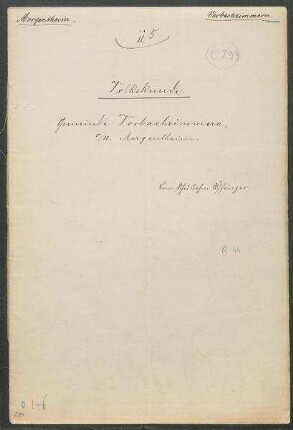 Mergentheim.
Vorbachzimmern.
ü 5
Volkskunde.
Gemeinde Vorbachzimmern,
O/A. Mergentheim.
Von Schullehrer